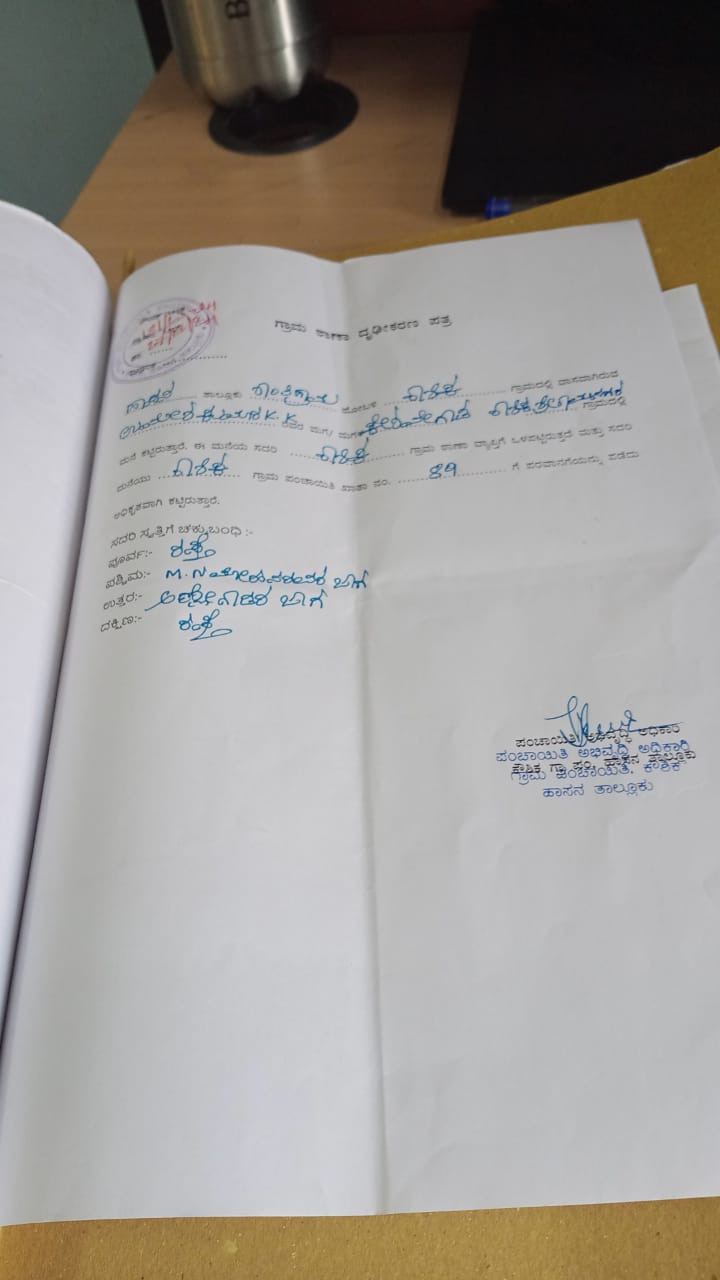 B
ಗ್ರಾಮ ಠಾಣಾ ದೃಢೀಕರಣ ಪತ್ರ
ಹಾಸನ ತಾಲ್ಲೂಕು ಶಾಂತಿಗ್ರಾಮ ಹೋಬಳಿ ಕೌಶಿಕ ಗ್ರಾಮದಲ್ಲಿ ವಾಸವಾಗಿರುವ
K.K ರವರ ಮಗ/ ಗ್ರಾಮದಲ್ಲಿ
ಮನೆ ಕಟ್ಟಿರುತ್ತಾರೆ. ಈ ಮನೆಯ ಸದರಿ ಕೌಶಿಕ ಗ್ರಾಮ ಠಾಣಾ ವ್ಯಾಪ್ತಿಗೆ ಒಳಪಟ್ಟಿರುತ್ತದೆ ಮತ್ತು ಸದರಿ
ಮನೆಯು ಕೌಶಿಕ ಗ್ರಾಮ ಪಂಚಾಯಿತಿ ಖಾತಾ ನಂ. ಗೆ ಪರವಾನಗೆಯನ್ನು ಪಡೆದು
ಅಧಿಕೃತವಾಗಿ ಕಟ್ಟಿರುತ್ತಾರೆ.
ಸದರಿ ಸ್ವತ್ತಿಗೆ ಚಕ್ಕುಬಂಧಿ :-
ಪೂರ್ವ:- ರಸ್ತೆ
ಪಶ್ಚಿಮ:- M.N ಜಾಗ
ಉತ್ತರ:- ಜಾಗ
ದಕ್ಷಿಣ:- ರಸ್ತೆ
ಪಂಚಾಯಿತಿ ಅಭಿವೃದ್ಧಿ ಅಧಿಕಾರಿ
ಪಂಚಾಯಿತಿ ಅಭಿವೃದ್ಧಿ ಅಧಿಕಾರಿ
ಕೌಶಿಕ ಗ್ರಾ ಪಂ, ಹಾಸನ ತಾಲ್ಲೂಕು
ಗ್ರಾಮ ಪಂಚಾಯಿತಿ, ಕೌಶಿಕ
ಹಾಸನ ತಾಲ್ಲೂಕು